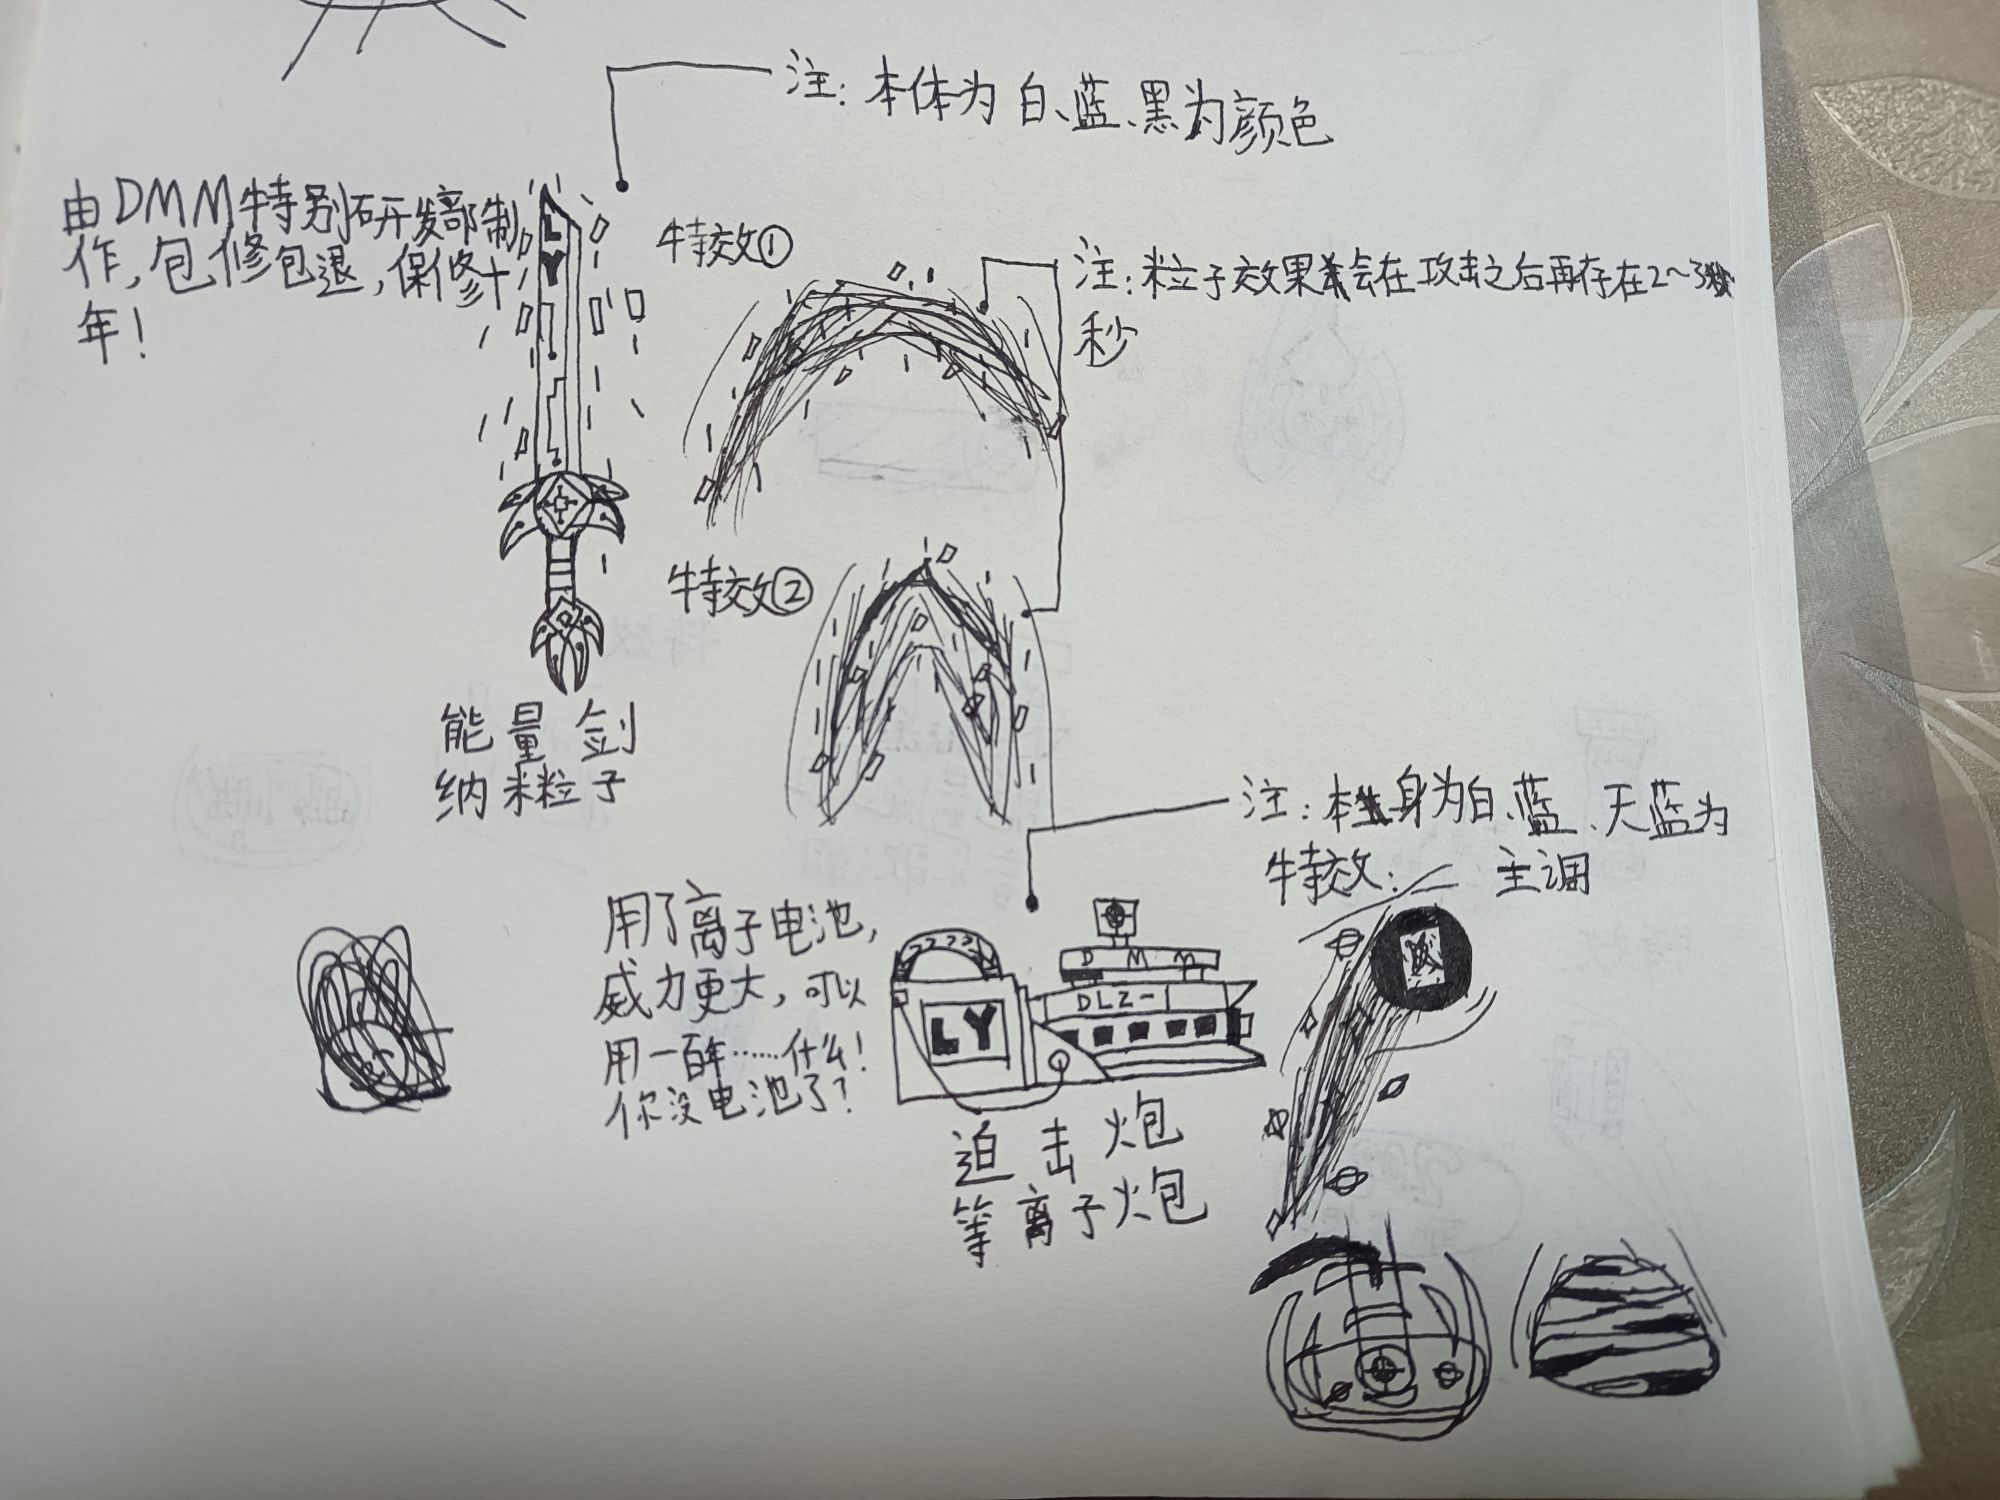 注：本体为白、蓝、黑为颜色
由DMM特别研发部制
作，包修包退，保修十
年！
LY
特效①
注：粒子效果会在攻击之后再存在2～3
秒
特效②
能量剑
纳米粒子
注：本身为白、蓝、天蓝为
主调
特效：
用了离子电池，
威力更大，可以
用一百年……什么！
你没电池了？
DMM
DLZ-1
LY
迫击炮
等离子炮